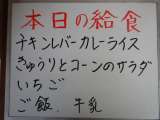 本日の給食
チキンレバーカレーライス
きゅうりとコーンのサラダ
いちご
ご飯、牛乳